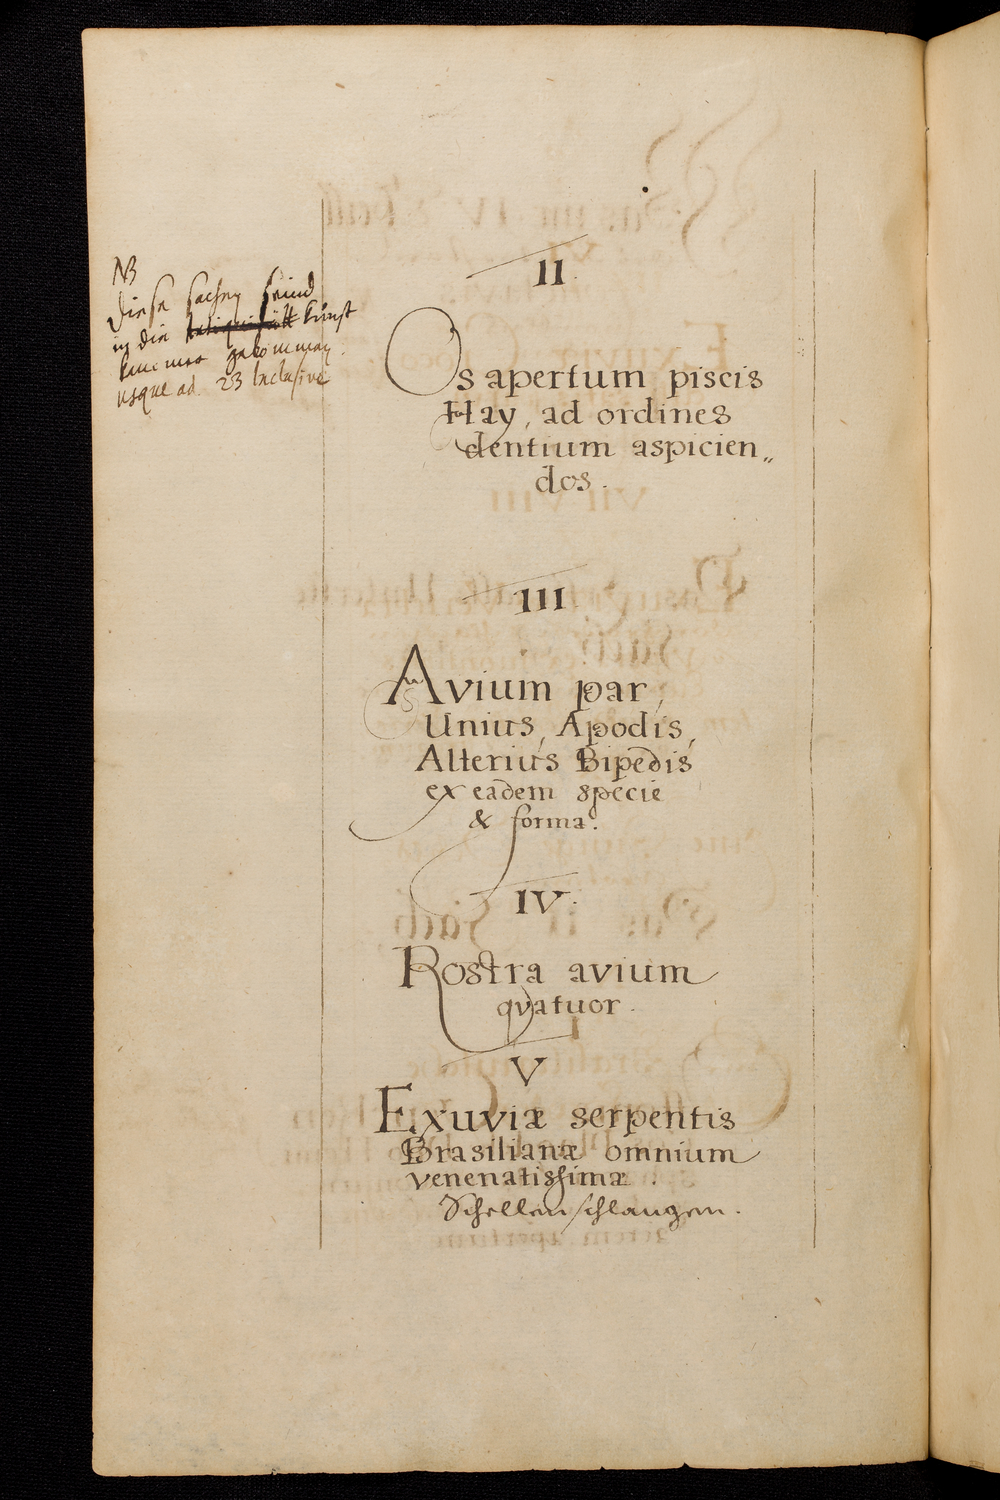 NB
diese sachen seind
in die antiquitatt kunst
kammer gekommen
usque ad 23 Inclusive
II.
Os apertum piscis
Hay, ad ordines
dentium aspicien„
dos.
III.
Avium par,
Unius, Apodis,
Alterius Bipedis
ex eadem specie
& forma.
IV.
Rostra avium
qvatuor.
V
Exuviæ serpentis
Brasilianæ omnium
venenatissimæ.
Schellenschlangen.